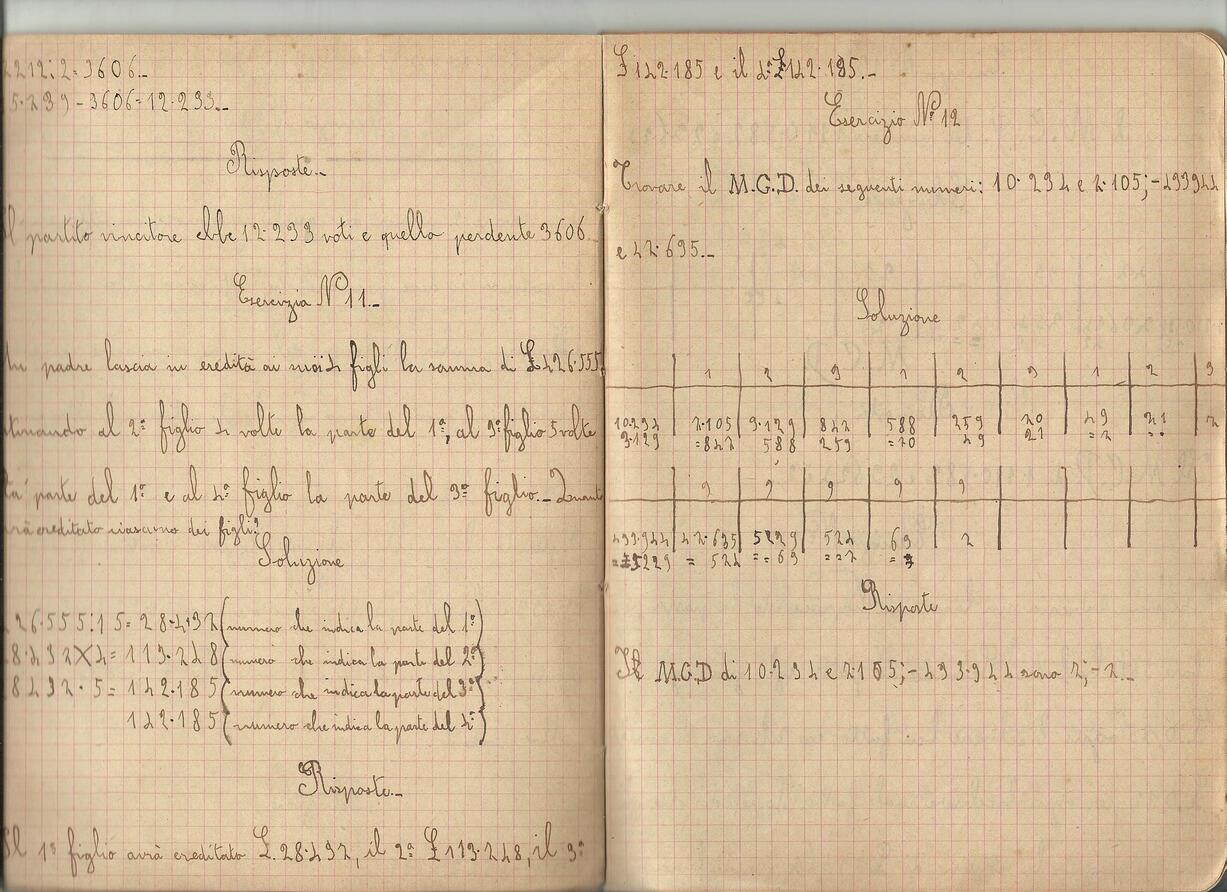 212:2=3606.-
5.239-3606=12.233.-
Risposte.-
Il partito vincitore ebbe 12.233 voti e quello perdente 3606.
Esercizio Nº 11.-
Un padre lascia in eredità ai suoi 4 figli la somma di £426.555,
tinando al 2º figlio 4 volte la parte del 1º, al 3º figlio 5 volte
la parte del 1º e al 4º figlio la parte del 3º figlio.- Quanto
creditato ciascuno dei figli?
Soluzione
26.555:15=28.432 (numero che indica la parte del 1º)
8.432×4=113.248 (numero che indica la parte del 2º)
8432.5=142.185 (numero che indica la parte del 3º)
142.185 (numero che indica la parte del 4º)
Risposte.-
Il 1º figlio avrà creditato £.28.432, il 2º £113.248, il 3º
£142.185 e il 4º £142.185.-
Esercizio Nº 12
Trovare il M.G.D. dei seguenti numeri: 10.234 e 2.105;-433944
e 42.635.-
Soluzione
1 2 3 1 2 3 1 2 3
10.234 2.105 3.129 842 588 259 20 49 21 2
3.129 =842 588 259 =20 49 21 =2
9 9 9 9 9
433.944 42.635 5229 524 69 2
5229 = 524 == 69 ==2
Risposte
Il M.G.D di 10.234 e 2.105;-433.944 sono 2;-2.-